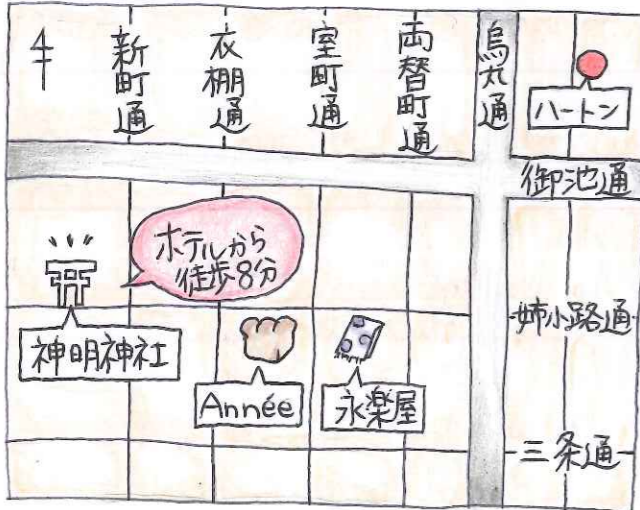 新町通
衣棚通
室町通
両替町通
烏丸通
ハートン
御池通
ホテルから
徒歩8分
姉小路通
神明神社
Année
永楽屋
三条通